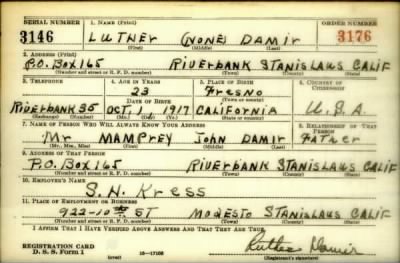 SERIAL NUMBER 1. NAME (Print) ORDER NUMBER
3146 LUTHER (NONE) DAMIR 3176
(First) (Middle) (Last)
2. ADDRESS (Print)
P.O. BOX 165 RIVERBANK STANISLAUS CALIF
(Number and street or R. F. D. number) (Town) (County) (State)
3. TELEPHONE 4. AGE IN YEARS 5. PLACE OF BIRTH 6. COUNTRY OF CITIZENSHIP
23 Fresno
DATE OF BIRTH (Town or county)
RIVERBANK 35 OCT. 1 1917 CALIFORNIA U.S.A
(Exchange) (Number) (Mo.) (Day) (Yr.) (State or country)
7. NAME OF PERSON WHO WILL ALWAYS KNOW YOUR ADDRESS 8. RELATIONSHIP OF THAT PERSON
Mr MAMPREY JOHN DAMIR FATHER
(Mr., Mrs., Miss) (First) (Middle) (Last)
9. ADDRESS OF THAT PERSON
P.O. BOX 165 RIVERBANK STANISLAUS CALIF
(Number and street or R. F. D. number) (Town) (County) (State)
10. EMPLOYER'S NAME
S.H. KRESS
11. PLACE OF EMPLOYMENT OR BUSINESS
922-10th ST MODESTO STANISLAUS CALIF
(Number and street or R. F. D. number) (Town) (County) (State)
I AFFIRM THAT I HAVE VERIFIED ABOVE ANSWERS AND THAT THEY ARE TRUE.
REGISTRATION CARD
D. S. S. Form 1 (over) 16-17105 Luther Damir
(Registrant's signature)